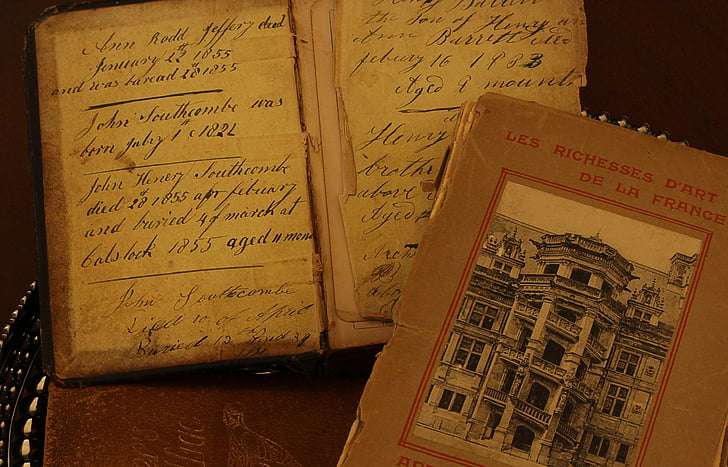 Ann Rodd Jeffery died
January 22th 1855
and was buread 28 1855
John Southcombe was
born july 1st 1822
John Henery Southcombe
died 28 1855 apr febuary
and buried 4 of march at
Calstock 1855 aged 11 mons
John Southcombe
Died 10 of April
Buried 13
the Son of Henry an
Ann Burrett died
febury 16 1883
Aged 9 mounth
Henry
brothe
above
Aged
LES RICHESSES D'ART
DE LA FRANCE